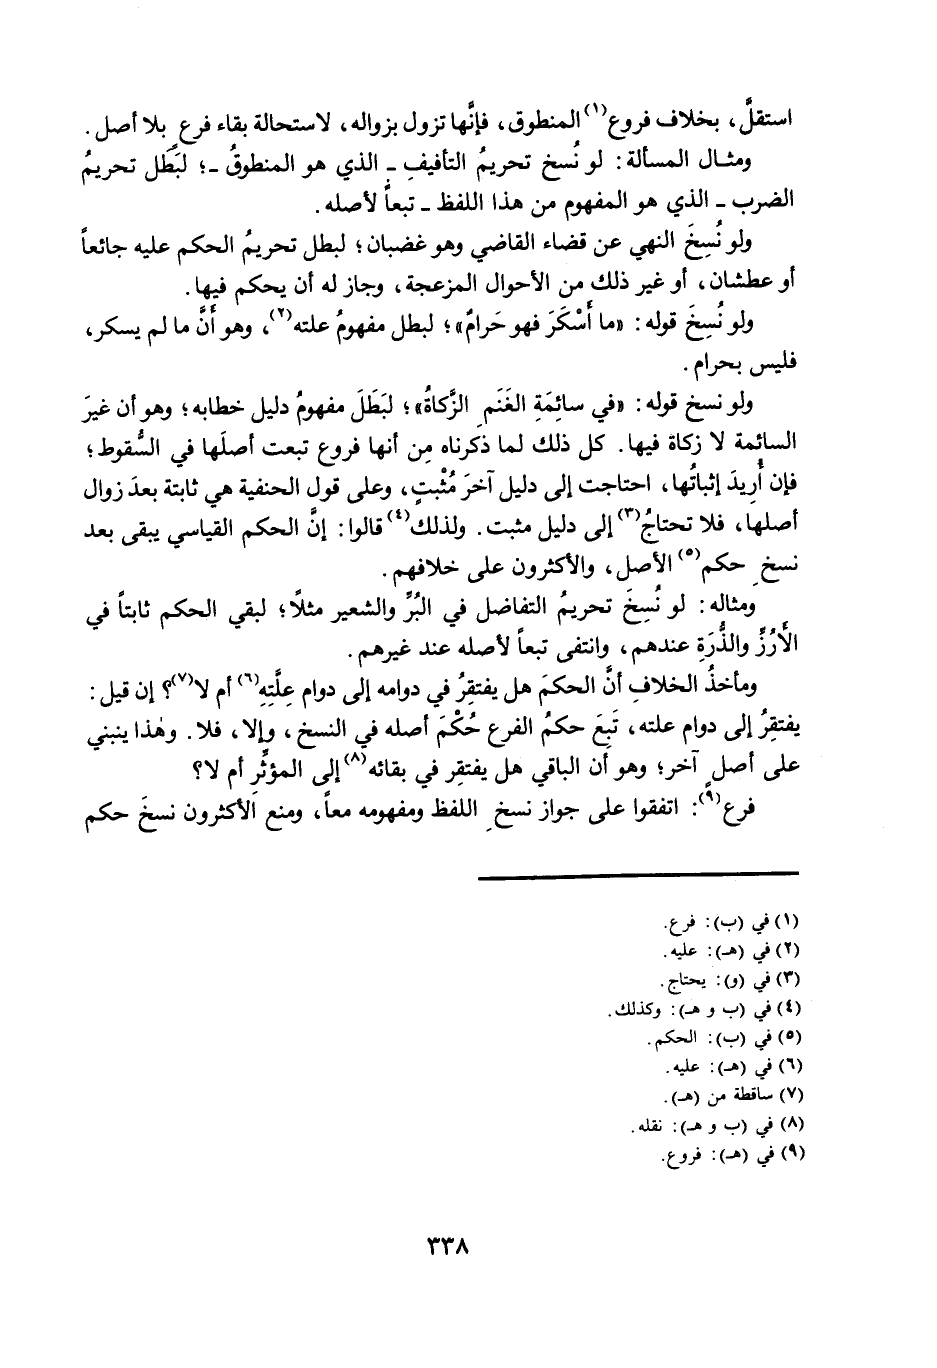 استقلَّ، بخلاف فروع(١) المنطوق، فإنَّها تزول بزواله، لاستحالة بقاء فرعٍ بلا أصل.
ومثال المسألة: لو نُسخ تحريمُ التأفيفِ ـ الذي هو المنطوقُ ـ؛ لبَطَل تحريمُ
الضرب ـ الذي هو المفهوم من هذا اللفظ ـ تبعاً لأصله.
ولو نُسِخَ النهي عن قضاء القاضي وهو غضبان؛ لبطل تحريمُ الحكم عليه جائعاً
أو عطشان، أو غير ذلك من الأحوال المزعجة، وجاز له أن يحكم فيها.
ولو نُسِخَ قوله: «ما أَسْكَرَ فهو حَرامٌ»؛ لبطل مفهومُ علته(٢)، وهو أنَّ ما لم يسكر،
فليس بحرام.
ولو نسخ قوله: «في سائِمَةِ الغَنَمِ الزَّكاةُ»؛ لبَطَلَ مفهومُ دليل خطابه؛ وهو أن غيرَ
السائمة لا زكاة فيها. كل ذلك لما ذكرناه مِن أنها فروع تبعت أصلَها في السُّقوط؛
فإن أُريدَ إثباتُها، احتاجت إلى دليل آخرَ مُثْبتٍ، وعلى قول الحنفية هي ثابتة بعدَ زوال
أصلها، فلا تحتاجُ(٣) إلى دليل مثبت. ولذلك(٤) قالوا: إنَّ الحكم القياسي يبقى بعد
نسخِ حكم(٥) الأصل، والأكثرون على خلافهم.
ومثاله: لو نُسِخَ تحريمُ التفاضل في البُرِّ والشعير مثلًا؛ لبقي الحكم ثابتاً في
الأَرُزِّ والذُّرَةِ عندهم، وانتفى تبعاً لأصله عند غيرهم.
ومأخذُ الخلافِ أنَّ الحكمَ هل يفتقِرُ في دوامه إلى دوام عِلَّتِهِ(٦) أم لا(٧)؟ إن قيل:
يفتقِرُ إلى دوام علته، تَبِعَ حكمُ الفرع حُكْمَ أصله في النسخ، وإلا، فلا. وهذا ينبني
على أصلٍ آخر؛ وهو أن الباقي هل يفتقِر في بقائه(٨) إلى المؤثِّرِ أم لا؟
فرع(٩): اتفقوا على جواز نسخِ اللفظ ومفهومه معاً، ومنع الأكثرون نسخَ حكم
(١) في (ب): فرع.
(٢) في (هـ): عليه.
(٣) في (و): يحتاج.
(٤) في (ب و هـ): وكذلك.
(٥) في (ب): الحكم.
(٦) في (هـ): عليه.
(٧) ساقطة من (هـ).
(٨) في (ب و هـ): نقله.
(٩) في (هـ): فروع.
٣٣٨